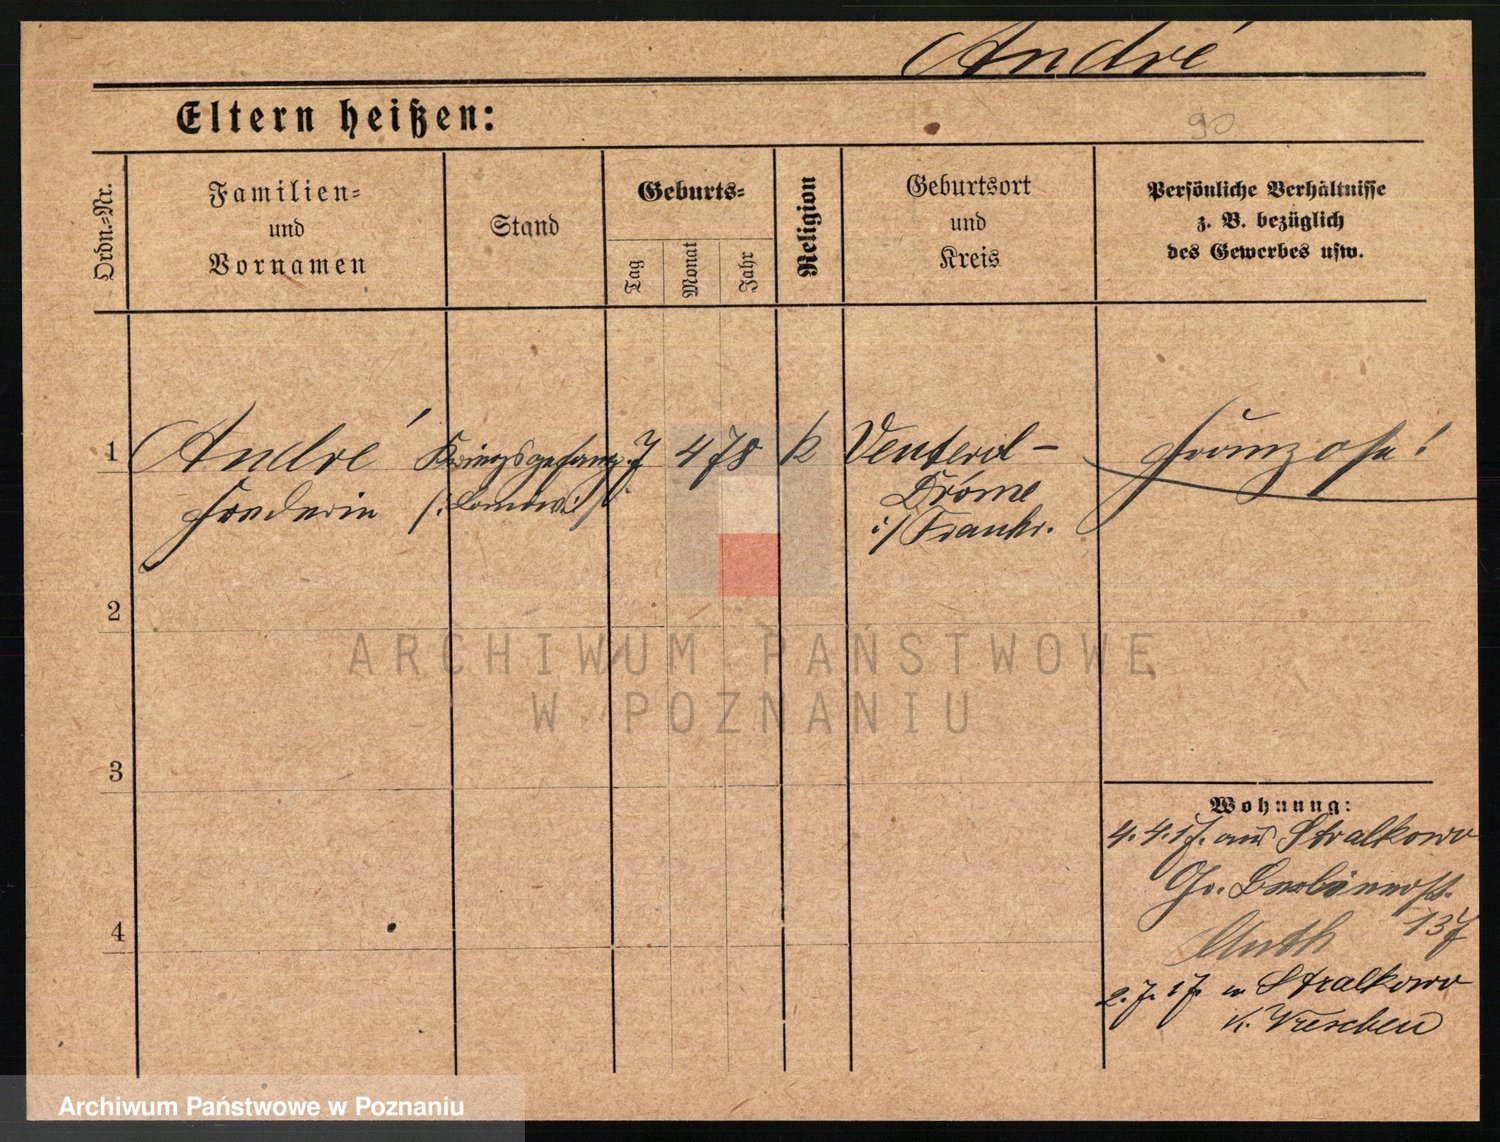 André
Eltern heißen:
90
Ordn.-Nr.
Familien-
und
Vornamen
Stand
Geburts-
Tag
Monat
Jahr
Religion
Geburtsort
und
Kreis
Persönliche Verhältnisse
z. B. bezüglich
des Gewerbes usw.
1 André Kriegsgefang. 7 4 78 k Venterol - Franzose!
Drôme
i/ Frankr.
2
ARCHIWUM PAŃSTWOWE
W POZNANIU
3
Wohnung:
4. 4. 17. aus Stralkowo
Gr. Berlinerst.
137
4
2. 7. 17. n Stralkowo
K. Wreschen
Archiwum Państwowe w Poznaniu